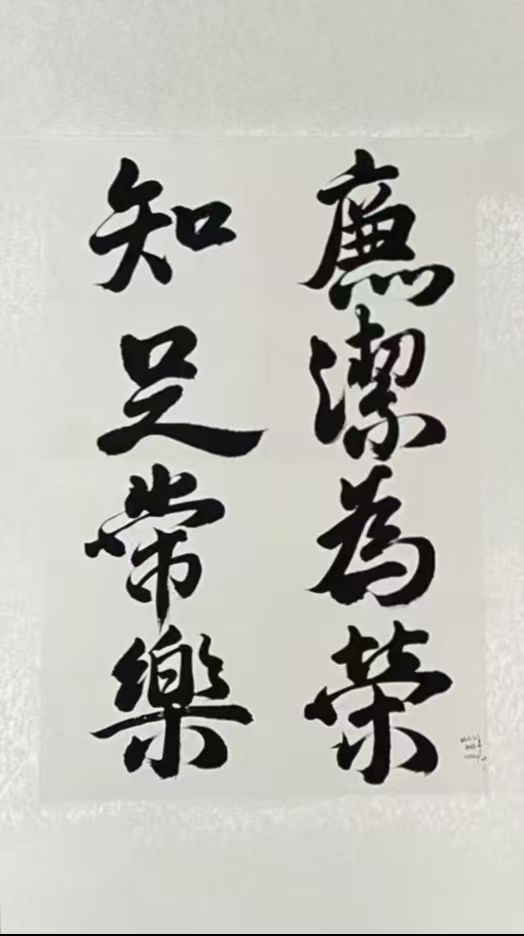 廉潔為榮
知足常樂